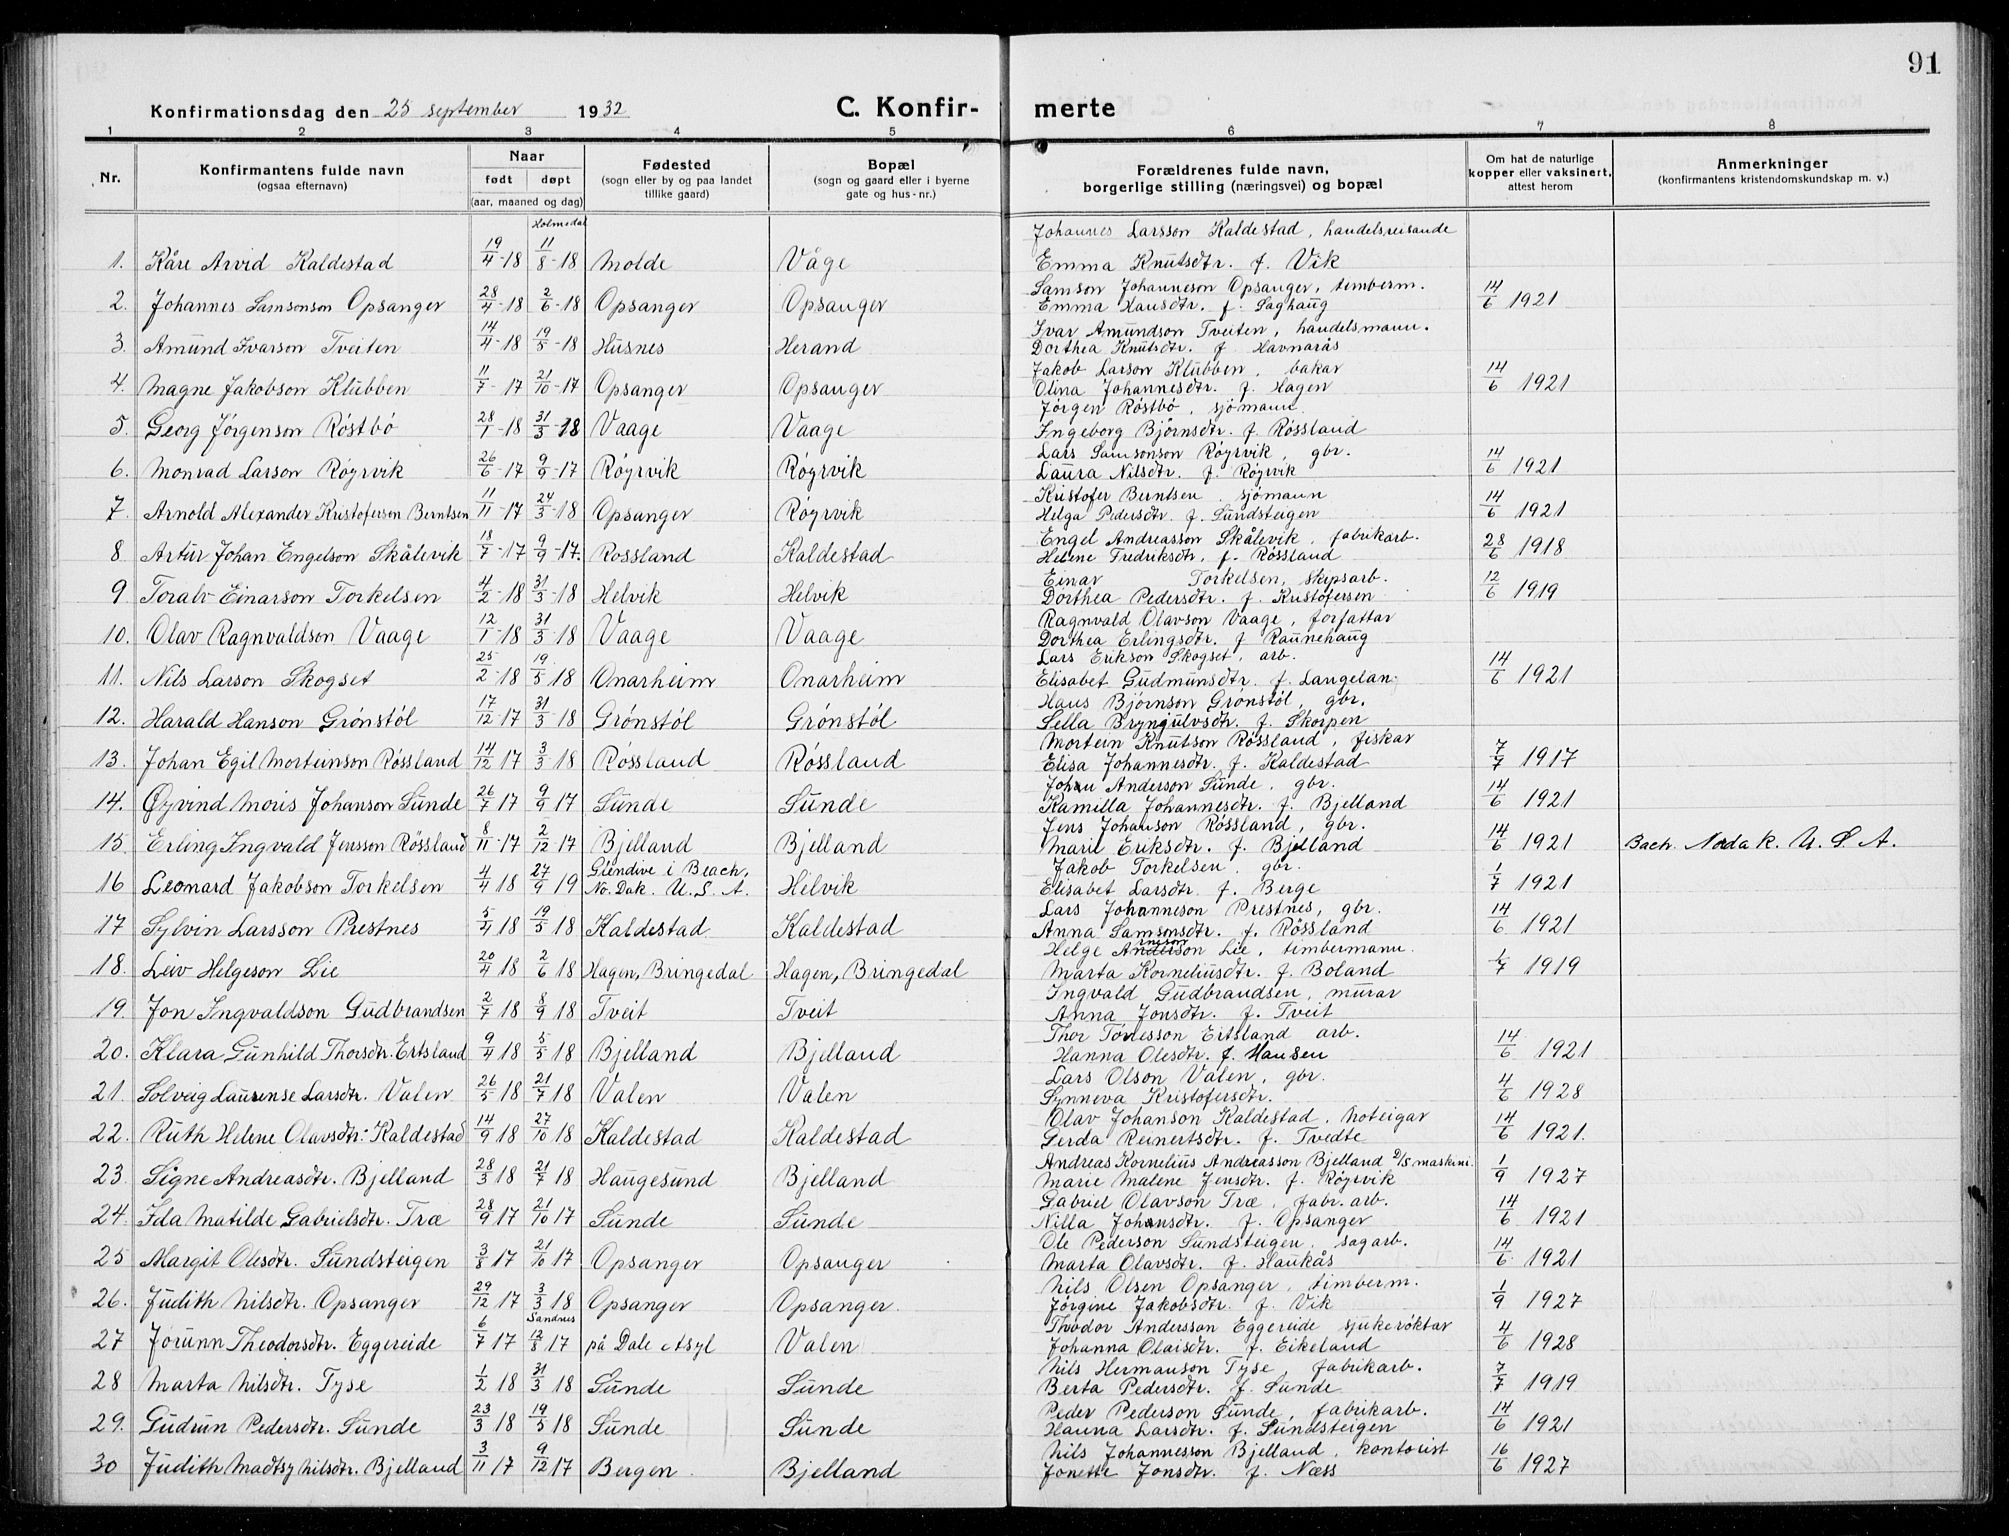 91
Konfirmationsdag den 25 september 1932
C. Konfirmerte
1 2 3 4 5 6 7 8
Nr.
Konfirmantens fulde navn (ogsaa efternavn)
Naar født døpt (aar, maaned og dag)
Fødested (sogn eller by og paa landet tillike gaard)
Bopæl (sogn og gaard eller i byerne gate og hus-nr.)
Forældrenes fulde navn, borgerlige stilling (næringsvei) og bopæl
Om hat de naturlige kopper eller vaksinert, attest herom
Anmerkninger (konfirmantens kristendomskundskap m. v.)
Holmedal
Johannes Larsson Kaldestad, handelsreisande
1. Kåre Arvid Kaldestad 19/4-18 11/8-18 Molde Våge Emma Knutsdtr. f. Vik
Samson Johanneson Opsanger, timberm.
2. Johannes Samsonson Opsanger 28/4-18 2/6-18 Opsanger Opsanger Emma Hansdtr. f. Saghaug 14/6 1921
Ivar Amundson Tveiten, handelsmann.
3. Amund Ivarson Tveiten 14/4-18 19/5-18 Husnes Herand Dorthea Knutsdtr. f. Havnarås
Jakob Larson Klubben, bakar
4. Magne Jakobson Klubben 11/7-17 21/10-17 Opsanger Opsanger Olina Johannesdtr. f. Hagen 14/6 1921
Jørgen Röstbö, sjömann.
5. Georg Jörgenson Röstbö 28/1-18 31/3-18 Vaage Vaage Ingeborg Bjørnsdtr. f. Røssland
Lars Samsonson Röyrvik, gbr.
6. Monrad Larson Röyrvik 26/6-17 9/9-17 Röyrvik Röyrvik Laura Nilsdtr. f. Röyrvik 14/6 1921
Kristofer Berntsen, sjömann
7. Arnold Alexander Kristofersen Berntsen 11/11-17 24/3-18 Opsanger Röyrvik Helga Pedersdtr. f. Sundsteigen 14/6 1921
Engel Andreasson Skålevik, fabrikarb.
8 Artur Johan Engelson Skålevik 18/7-17 9/9-17. Rossland Kaldestad Helene Fredriksdtr. f. Røssland 28/6 1918
Einar Torkelsen, skipsarb.
9 Toralv Einarson Torkelsen 4/2-18 31/3-18 Helvik Helvik Dorthea Pedersdtr. f. Kristofersen 12/6 1919
Ragnvald Olavson Vaage, forfattar
10. Olav Ragnvaldson Vaage 12/1-18 31/3 18 Vaage Vaage Dorthea Erlingsdtr. f Raunehaug
Lars Erikson Skogset, arb.
11. Nils Larson Skogset 25/2-18 19/5 18 Onarheim Onarheim Elisabet Gudmunsdtr. f. Langelan 14/6 1921
Hans Bjørnson Grønstöl, gbr.
12. Harald Hanson Grönstöl 17/12-17 31/3 18 Grönstöl Grönstöl Sella Bryngulvsdtr. f. Skorpen
Mortein Knutson Røssland, fiskar
13. Johan Egil Morteinson Røssland 14/12 17 3/3 18 Røssland Røssland Elisa Johannesdtr. f. Kaldestad 7/7 1917
Johan Anderson Sunde, gbr.
14. Øyvind Moris Johanson Sunde 26/7 17 9/9 17 Sunde Sunde Kamilla Johannesdtr. f. Bjelland 14/6 1921
Jens Johanson Røssland, gbr.
15 Erling Ingvald Jensson Røssland 8/11-17 2/12-17 Bjelland Bjelland Marie Eriksdtr. f. Bjelland 14/6 1921 Bach. Nodak. U. S. A.
Jakob Torkelsen, gbr.
16 Leonard Jakobson Torkelsen 4/4 18 27/9 19 Glendive i Beach, No. Dak. U. S. A. Helvik Elisabet Larsdtr. f. Berge 1/7 1921
Lars Johanneson Prestnes, gbr.
17 Sylvin Larsson Prestnes 5/4 18 19/5 18 Kaldestad Kaldestad Anna Samsonsdtr. f. Røssland 14/6 1921
Helge Anderson Lie, timbermann.
18. Leiv Helgeson Lie 20/4 18 2/6 18 Hagen, Bringedal Hagen, Bringedal Marta Korneliusdtr. f. Boland 1/7 1919
Ingvald Gudbrandsen, murar
19. Jon Ingvaldson Gudbrandsen 2/7 18 8/9 18 Tveit Tveit Anna Jonsdtr. f. Tveit
Thor Tönesson Ertsland arb.
20. Klara Gunhild Thorsdtr. Ertsland 9/4 18 5/5 18 Bjelland Bjelland Hanna Olesdtr. f. Hansen 14/6 1921
Lars Olson Valen, gbr.
21. Solveig Laurense Larsdtr. Valen 26/5 18 21/7 18 Valen Valen Synneva Kristofersdtr. 4/6 1928
Olav Johanson Kaldestad, noteigar
22. Ruth Helene Olavsdtr. Kaldestad 14/9 18 27/10 18 Kaldestad Kaldestad Gerda Reinertsdtr. f. Tvedte 14/6 1921.
Andreas Kornelius Andreasson Bjelland D/S maskini.
23. Signe Andreasdtr. Bjelland 28/3 18 21/7 18 Haugesund Bjelland Marie Malene Jensdtr. f. Röyrvik 1/9 1927
Gabriel Olavson Træ, fabr. arb.
24. Ida Matilde Gabrielsdtr. Træ 28/9 17 21/10 17 Sunde Sunde Nilla Johansdtr. f. Opsanger 14/6 1921
Ole Pederson Sundsteigen, sagarb.
25 Margit Olesdtr. Sundsteigen 3/8 17 21/10 17 Opsanger Opsanger Marta Olavsdtr. f. Haukås 14/6 1921
Nils Olsen Opsanger, timberm.
26. Judith Nilsdtr. Opsanger 29/12 17 3/3 18 Opsanger Opsanger. Jørgine Jakobsdtr. f. Vik 1/9 1927
Sandnes
Thodor Andersson Eggereide sjukerøktar
27 Jorunn Theodorsdtr. Eggereide 6/7 17 12/8 17 på Dale Asyl Valen Johanna Olaisdtr. f. Eikeland 4/6 1928
Nils Hermanson Tyse, fabrikarb.
28 Marta Nilsdtr. Tyse 1/2 18 31/3 18 Sunde Sunde Berta Pedersdtr. f. Sunde 7/7 1919
Peder Pederson Sunde, fabrikarb.
29. Gudrun Pedersdtr. Sunde 23/3 18 19/5 18 Sunde Sunde Hanna Larsdtr. f. Sundsteigen 14/6 1921
Nils Johannesson Bjelland, kontorist
30 Judith Madtsy Nilsdtr. Bjelland 3/11 17 9/12 17 Bergen Bjelland Jonette Jonsdtr. f. Næss 16/6 1927